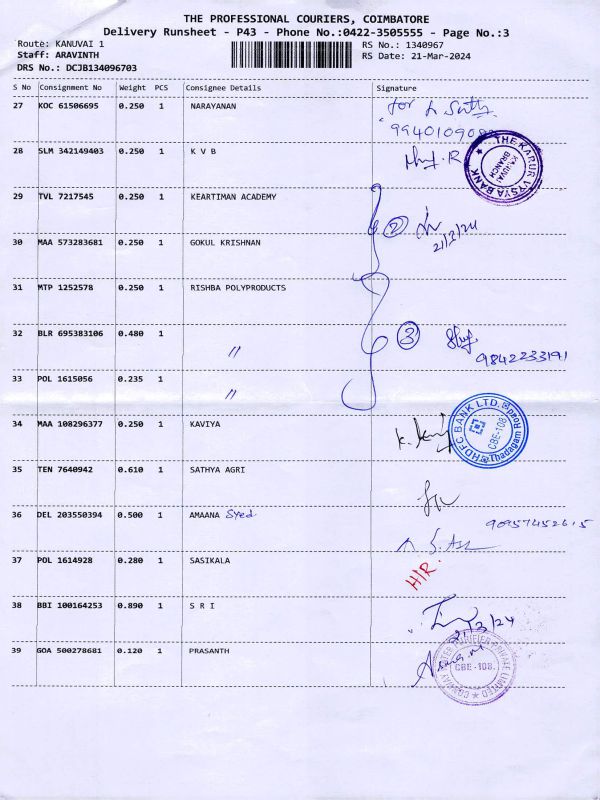 THE PROFESSIONAL COURIERS, COIMBATORE
Delivery Runsheet - P43 - Phone No.:0422-3505555 - Page No.:3
Route: KANUVAI 1 RS No.: 1340967
Staff: ARAVINTH RS Date: 21-Mar-2024
DRS No.: DCJB134096703
S No Consignment No Weight PCS Consignee Details Signature
27 KOC 61506695 0.250 1 NARAYANAN for
28 SLM 342149403 0.250 1 K V B
THE KARUR VYSYA BANK
KANUVAI
BRANCH
29 TVL 7217545 0.250 1 KEARTIMAN ACADEMY
2
21/3/24
30 MAA 573283681 0.250 1 GOKUL KRISHNAN
31 MTP 1252578 0.250 1 RISHBA POLYPRODUCTS
32 BLR 695383106 0.480 1 〃 3
9842233191
33 POL 1615056 0.235 1 〃
34 MAA 108296377 0.250 1 KAVIYA
HDFC BANK LTD.
CBE-108
Thadagam Road
35 TEN 7640942 0.610 1 SATHYA AGRI
36 DEL 203550394 0.500 1 AMAANA Syed 90957452615
37 POL 1614928 0.280 1 SASIKALA H/R.
38 BBI 100164253 0.890 1 S R I
21/3/24
39 GOA 500278681 0.120 1 PRASANTH
PRIVATE LIMITED
CBE-108.